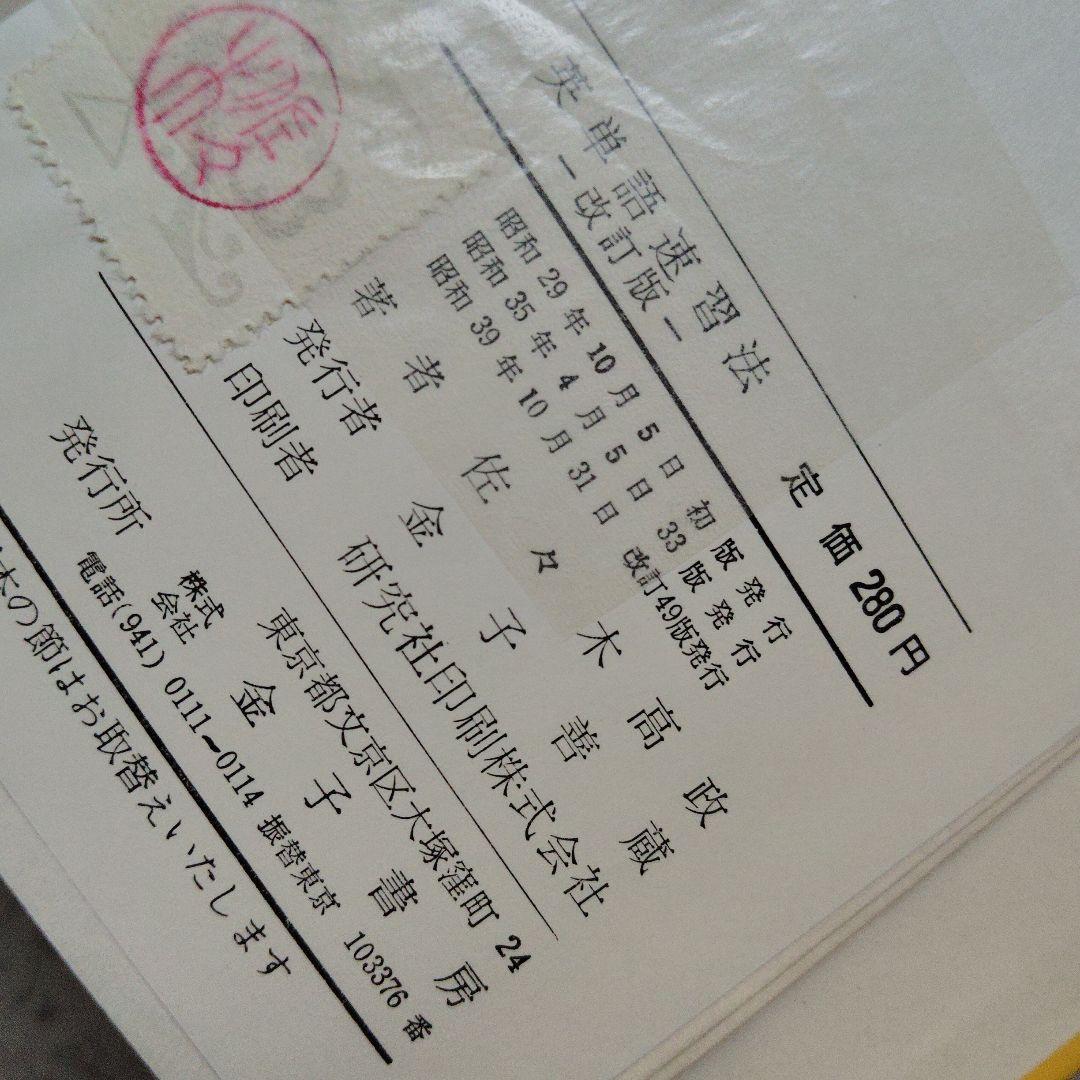 英単語速習法 定価 280円
—改訂版—
昭和 29 年 10 月 5 日 初版発行
昭和 35 年 4 月 5 日 33 版発行
昭和 39 年 10 月 31 日 改訂49版発行
著者 佐々木高政
発行者 金子善蔵
印刷者 研究社印刷株式会社
東京都文京区大塚窪町 24
発行所 株式会社 金子書房
電話(941) 0111~0114 振替東京 103376 番
本の節はお取替えいたします